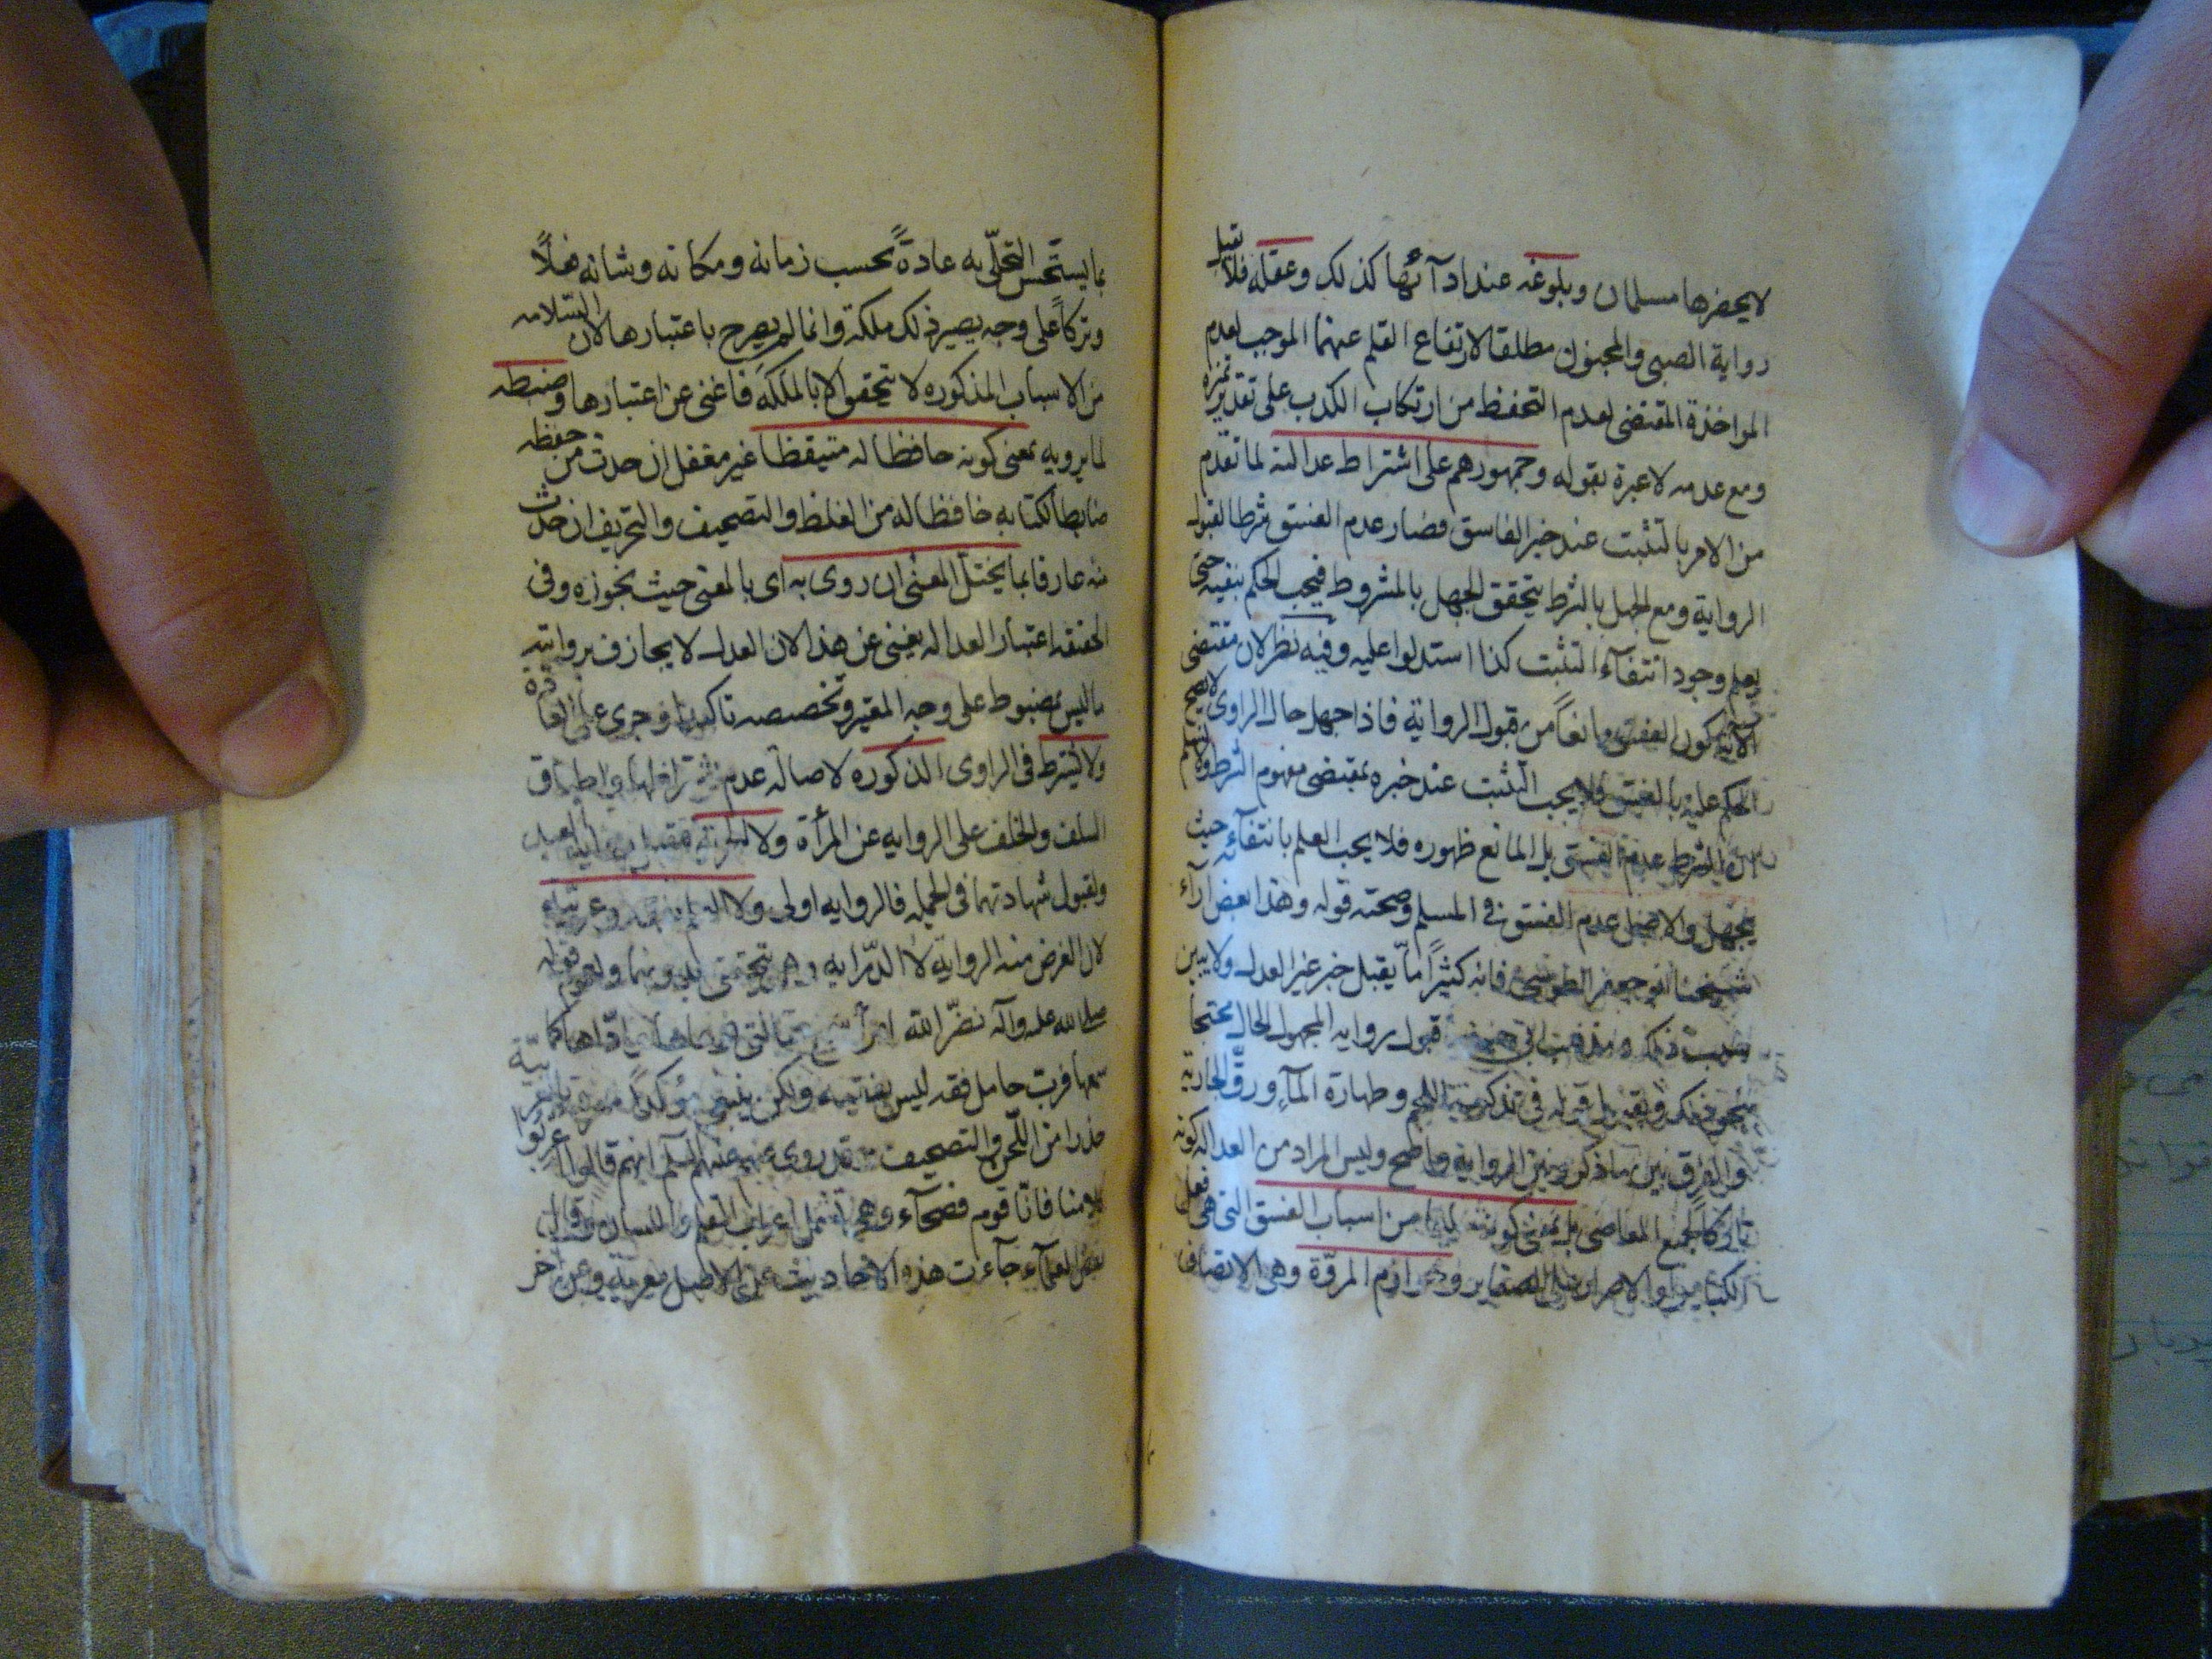 لا يحصرها مسلمان وبلوغه عند ادآئها كذلك وعقله فلا تقبل
رواية الصبي والمجنون مطلقا لارتفاع القلم عنهما الموجب لعدم
المواخذة المقتضى لعدم التحفظ من ارتكاب الكذب على تقدير تميزه
ومع عدمه لا عبرة بقوله وجمهورهم على اشتراط عدالته لما تقدم
من الامر بالتثبت عند خبر الفاسق فصار عدم الفسق شرطا لقبول
الرواية ومع الجهل بالشرط يتحقق الجهل بالمشروط فيجب الحكم بنفيه حتى
يعلم وجود انتفآء التثبت كذا استدلوا عليه وفيه نظر لان مقتضى
الآية كون الفسق مانعاً من قبول الرواية فاذا جهل حال الراوي لا يصح
الحكم عليه بالفسق فلا يجب التثبت عند خبره بمقتضى مفهوم الشرط ولا نسلم
ان الشرط عدم الفسق بل المانع ظهوره فلا يجب العلم بانتفآئه حيث
يجهل والاصل عدم الفسق في المسلم وصحته قوله وهذا بعض ارآء
شيخنا ابو جعفر الطوسي فانه كثيراً ما يقبل خبر غير العدل ولا يبين
سبب ذلك ومذهب ابي حنيفة قبول رواية المجهول الحال محتجا
بنحو ذلك وبقبول قوله في تذكية اللحم وطهارة المآء ورق الجارية
والفرق بين ما ذكر وبين الرواية واضح وليس المراد من العدالة كونه
تاركاً لجميع المعاصى بل بمعنى كونه سليما من اسباب الفسق التى هى فعل
الكباير او الاصرار على الصغاير وخوارم المروّة وهى الاتصاف
بما يستحسن التحلّى به عادةً بحسب زمانه ومكانه وشانه فعلاً
وتركاً على وجه يصير ذلك ملكة وانما لم يصرح باعتبارها لان السلامه
من الاسباب المذكوره لا تتحقق الا بالملكة فاغنى عن اعتبارها وضبطه
لما يرويه بمعنى كونه حافظا له متيقظا غير مغفل ان حدث من حفظه
ضابطا لكتابه حافظا له من الغلط والتصحيف والتحريف ان حدث
منه عارفا بما يختل المعنى ان روى به اى بالمعنى حيث نجوزه وفى
الحقيقه اعتبار العداله يغنى عن هذا لان العدل لا يجازف برواية
ما ليس بمضبوط على وجه المعتبر وتخصصه تاكيد او جرى على العادة
ولا يشترط فى الراوى الذكوره لاصالة عدم اشتراطها واطباق
السلف والخلف على الروايه عن المرأة ولا الحرية فتقبل رواية العبد
ولقبول شهادتهما فى الجمله فالروايه اولى ولا العلم بفقه وعربية
لان الغرض منه الرواية لا الدّرايه وهى تتحقق بدونهما ولعموم قوله
صلى الله عليه وآله نضّر الله امرأً سمع مقالتى فوعاها فادّاها كما
سمعها فرب حامل فقه ليس بفقيه ولكن ينبغى مؤكداً معرفته بالعربيّة
حذرا من اللّحن والتصحيف وقد روى عنهم عليهم السلم انهم قالوا اعربوا
كلامنا فانّا قوم فصحآء وهو يشمل اعراب القلم واللسان وقال
بعض العلمآء جآءت هذه الاحاديث على الاصل معربة وعن آخر